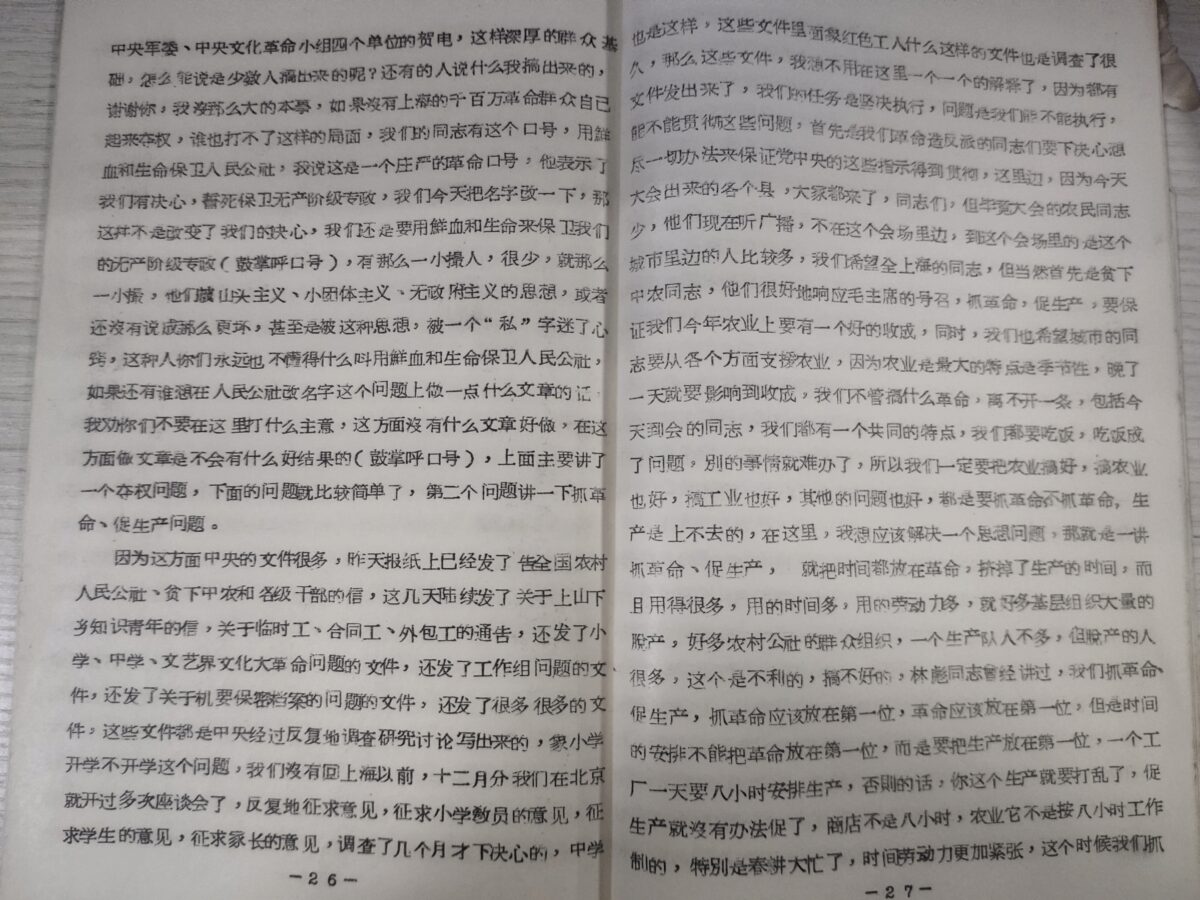 中央军委、中央文化革命小组四个单位的贺电，这样深厚的群众基
础，怎么能说是少数人搞出来的呢？还有的人说什么我搞出来的，
谢谢你，我没那么大的本事，如果没有上海的千百万革命群众自己
起来夺权，谁也打不了这样的局面，我们的同志有这个口号，用鲜
血和生命保卫人民公社，我说这是一个庄严的革命口号，他表示了
我们有决心，誓死保卫无产阶级专政，我们今天把名字改一下，那
这并不是改变了我们的决心，我们还是要用鲜血和生命来保卫我们
的无产阶级专政（鼓掌呼口号），有那么一小撮人，很少，就那么
一小撮，他们被山头主义、小团体主义、无政府主义的思想，或者
还没有说成那么更坏，甚至是被这种思想，被一个“私”字迷了心
窍，这种人你们永远也不懂得什么叫用鲜血和生命保卫人民公社，
如果还有谁想在人民公社改名字这个问题上做一点什么文章的话，
我劝你们不要在这里打什么主意，这方面没有什么文章好做，在这
方面做文章是不会有什么好结果的（鼓掌呼口号），上面主要讲了
一个夺权问题，下面的问题就比较简单了，第二个问题讲一下抓革
命、促生产问题。
因为这方面中央的文件很多，昨天报纸上已经发了告全国农村
人民公社、贫下中农和各级干部的信，这几天陆续发了关于上山下
乡知识青年的信，关于临时工、合同工、外包工的通告，还发了小
学、中学、文艺界文化大革命问题的文件，还发了工作组问题的文
件，还发了关于机要保密档案的问题的文件，还发了很多很多的文
件，这些文件都是中央经过反复地调查研究讨论写出来的，象小学
开学不开学这个问题，我们没有回上海以前，十二月分我们在北京
就开过多次座谈会了，反复地征求意见，征求小学教员的意见，征
求学生的意见，征求家长的意见，调查了几个月才下决心的，中学
－26－
也是这样，这些文件里面象红色工人什么这样的文件也是调查了很
久，那么这些文件，我想不用在这里一个一个的解释了，因为都有
文件发出来了，我们的任务是坚决执行，问题是我们能不能执行，
能不能贯彻这些问题，首先是我们革命造反派的同志们要下决心想
尽一切办法来保证党中央的这些指示得到贯彻，这里边，因为今天
大会出来的各个县，大家都来了，同志们，但毕竟大会的农民同志
少，他们现在听广播，不在这个会场里边，到这个会场里的是这个
城市里边的人比较多，我们希望全上海的同志，但当然首先是贫下
中农同志，他们很好地响应毛主席的号召，抓革命，促生产，要保
证我们今年农业上要有一个好的收成，同时，我们也希望城市的同
志要从各个方面支援农业，因为农业是最大的特点是季节性，晚了
一天就要影响到收成，我们不管搞什么革命，离不开一条，包括今
天到会的同志，我们都有一个共同的特点，我们都要吃饭，吃饭成
了问题，别的事情就难办了，所以我们一定要把农业搞好，搞农业
也好，搞工业也好，其他的问题也好，都是要抓革命不抓革命，生
产是上不去的，在这里，我想应该解决一个思想问题，那就是一讲
抓革命、促生产，就把时间都放在革命，挤掉了生产的时间，而
且用得很多，用的时间多，用的劳动力多，就好多基层组织大量的
脱产，好多农村公社的群众组织，一个生产队人不多，但脱产的人
很多，这个是不利的，搞不好的，林彪同志曾经讲过，我们抓革命、
促生产，抓革命应该放在第一位，革命应该放在第一位，但是时间
的安排不能把革命放在第一位，而是要把生产放在第一位，一个工
厂一天要八小时安排生产，否则的话，你这个生产就要打乱了，促
生产就没有办法促了，商店不是八小时，农业它不是按八小时工作
制的，特别是春耕大忙了，时间劳动力更加紧张，这个时候我们抓
－27－